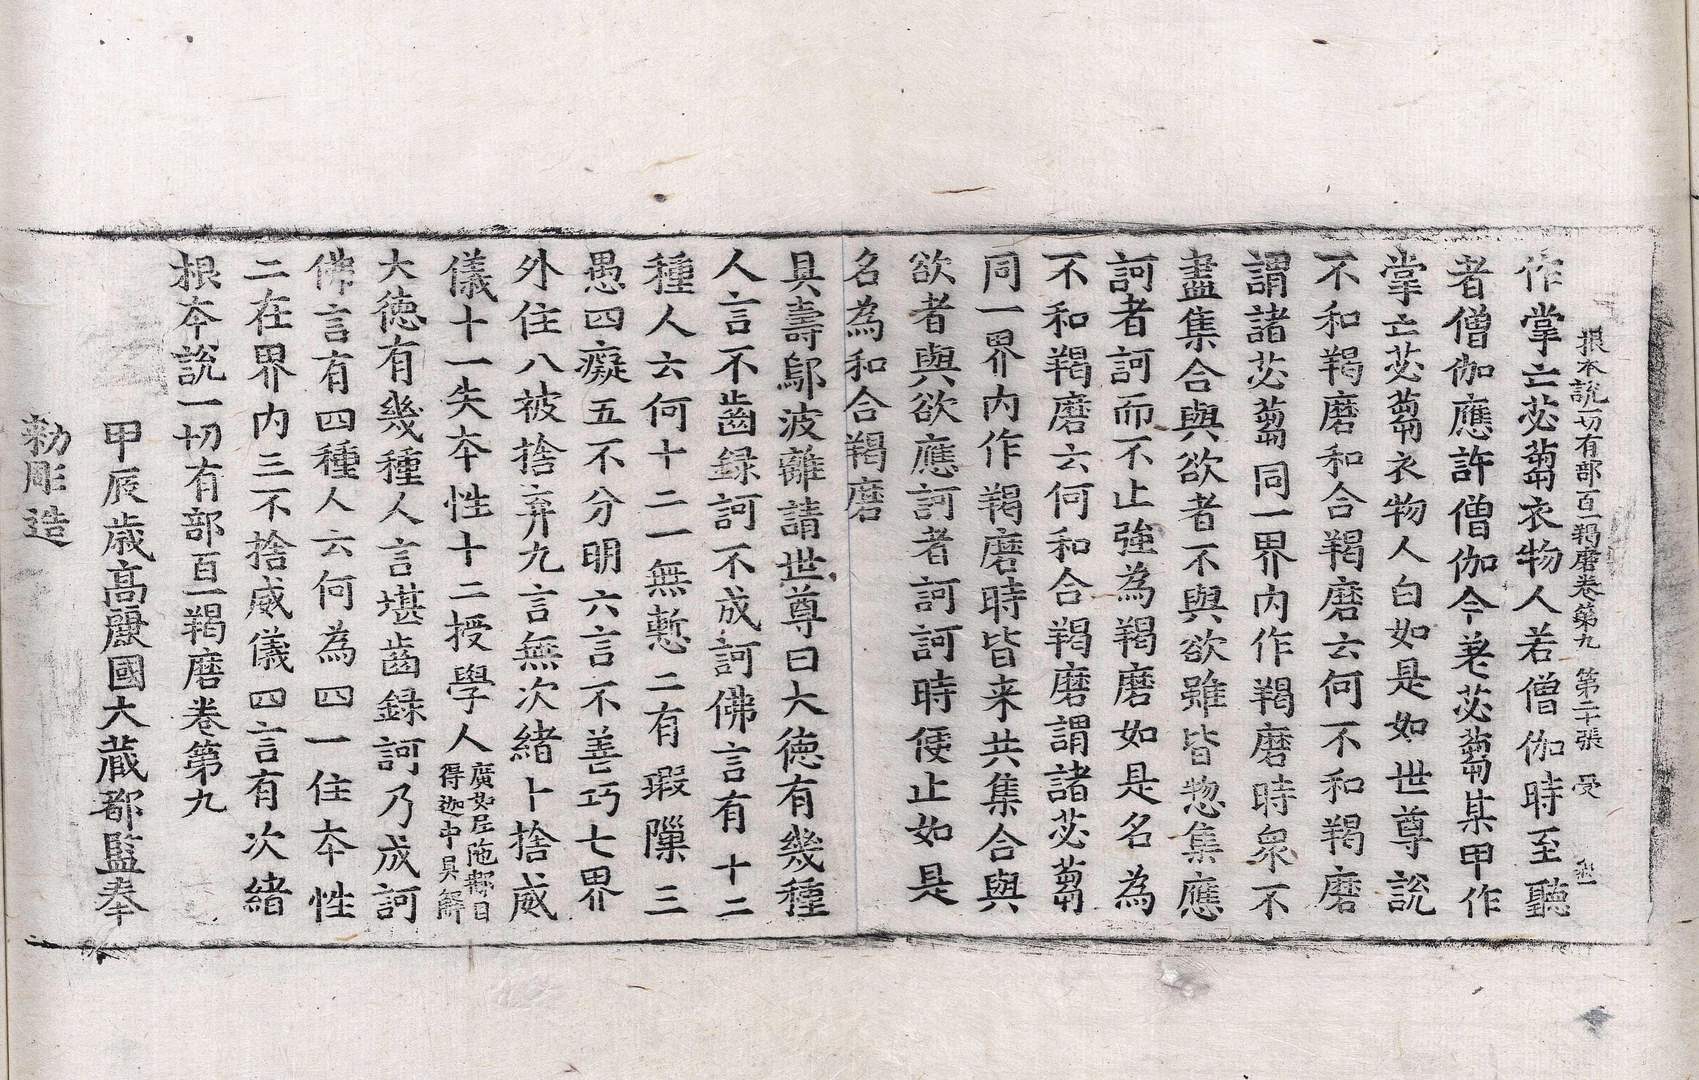 根本說一切有部百一羯磨卷第九　第二十張　受
作掌亡苾蒭衣物人若僧伽時至聽
者僧伽應許僧伽今差苾蒭某甲作
掌亡苾蒭衣物人白如是如世尊說
不和羯磨和合羯磨云何不和羯磨
謂諸苾蒭同一界內作羯磨時衆不
盡集合與欲者不與欲雖皆惣集應
訶者訶而不止強為羯磨如是名為
不和羯磨云何和合羯磨謂諸苾蒭
同一界內作羯磨時皆来共集合與
欲者與欲應訶者訶訶時便止如是
名為和合羯磨
具壽鄔波離請世尊曰大德有幾種
人言不齒録訶不成訶佛言有十二
種人云何十二一無慙二有瑕隟三
愚四癡五不分明六言不善巧七界
外住八被捨弃九言無次緒十捨威
儀十一失本性十二授學人廣如尼陁那目得迦中具解
大德有幾種人言堪齒録訶乃成訶
佛言有四種人云何為四一住本性
二在界內三不捨威儀四言有次緒
根本說一切有部百一羯磨卷第九
甲辰歲高麗國大藏都監奉
勅彫造